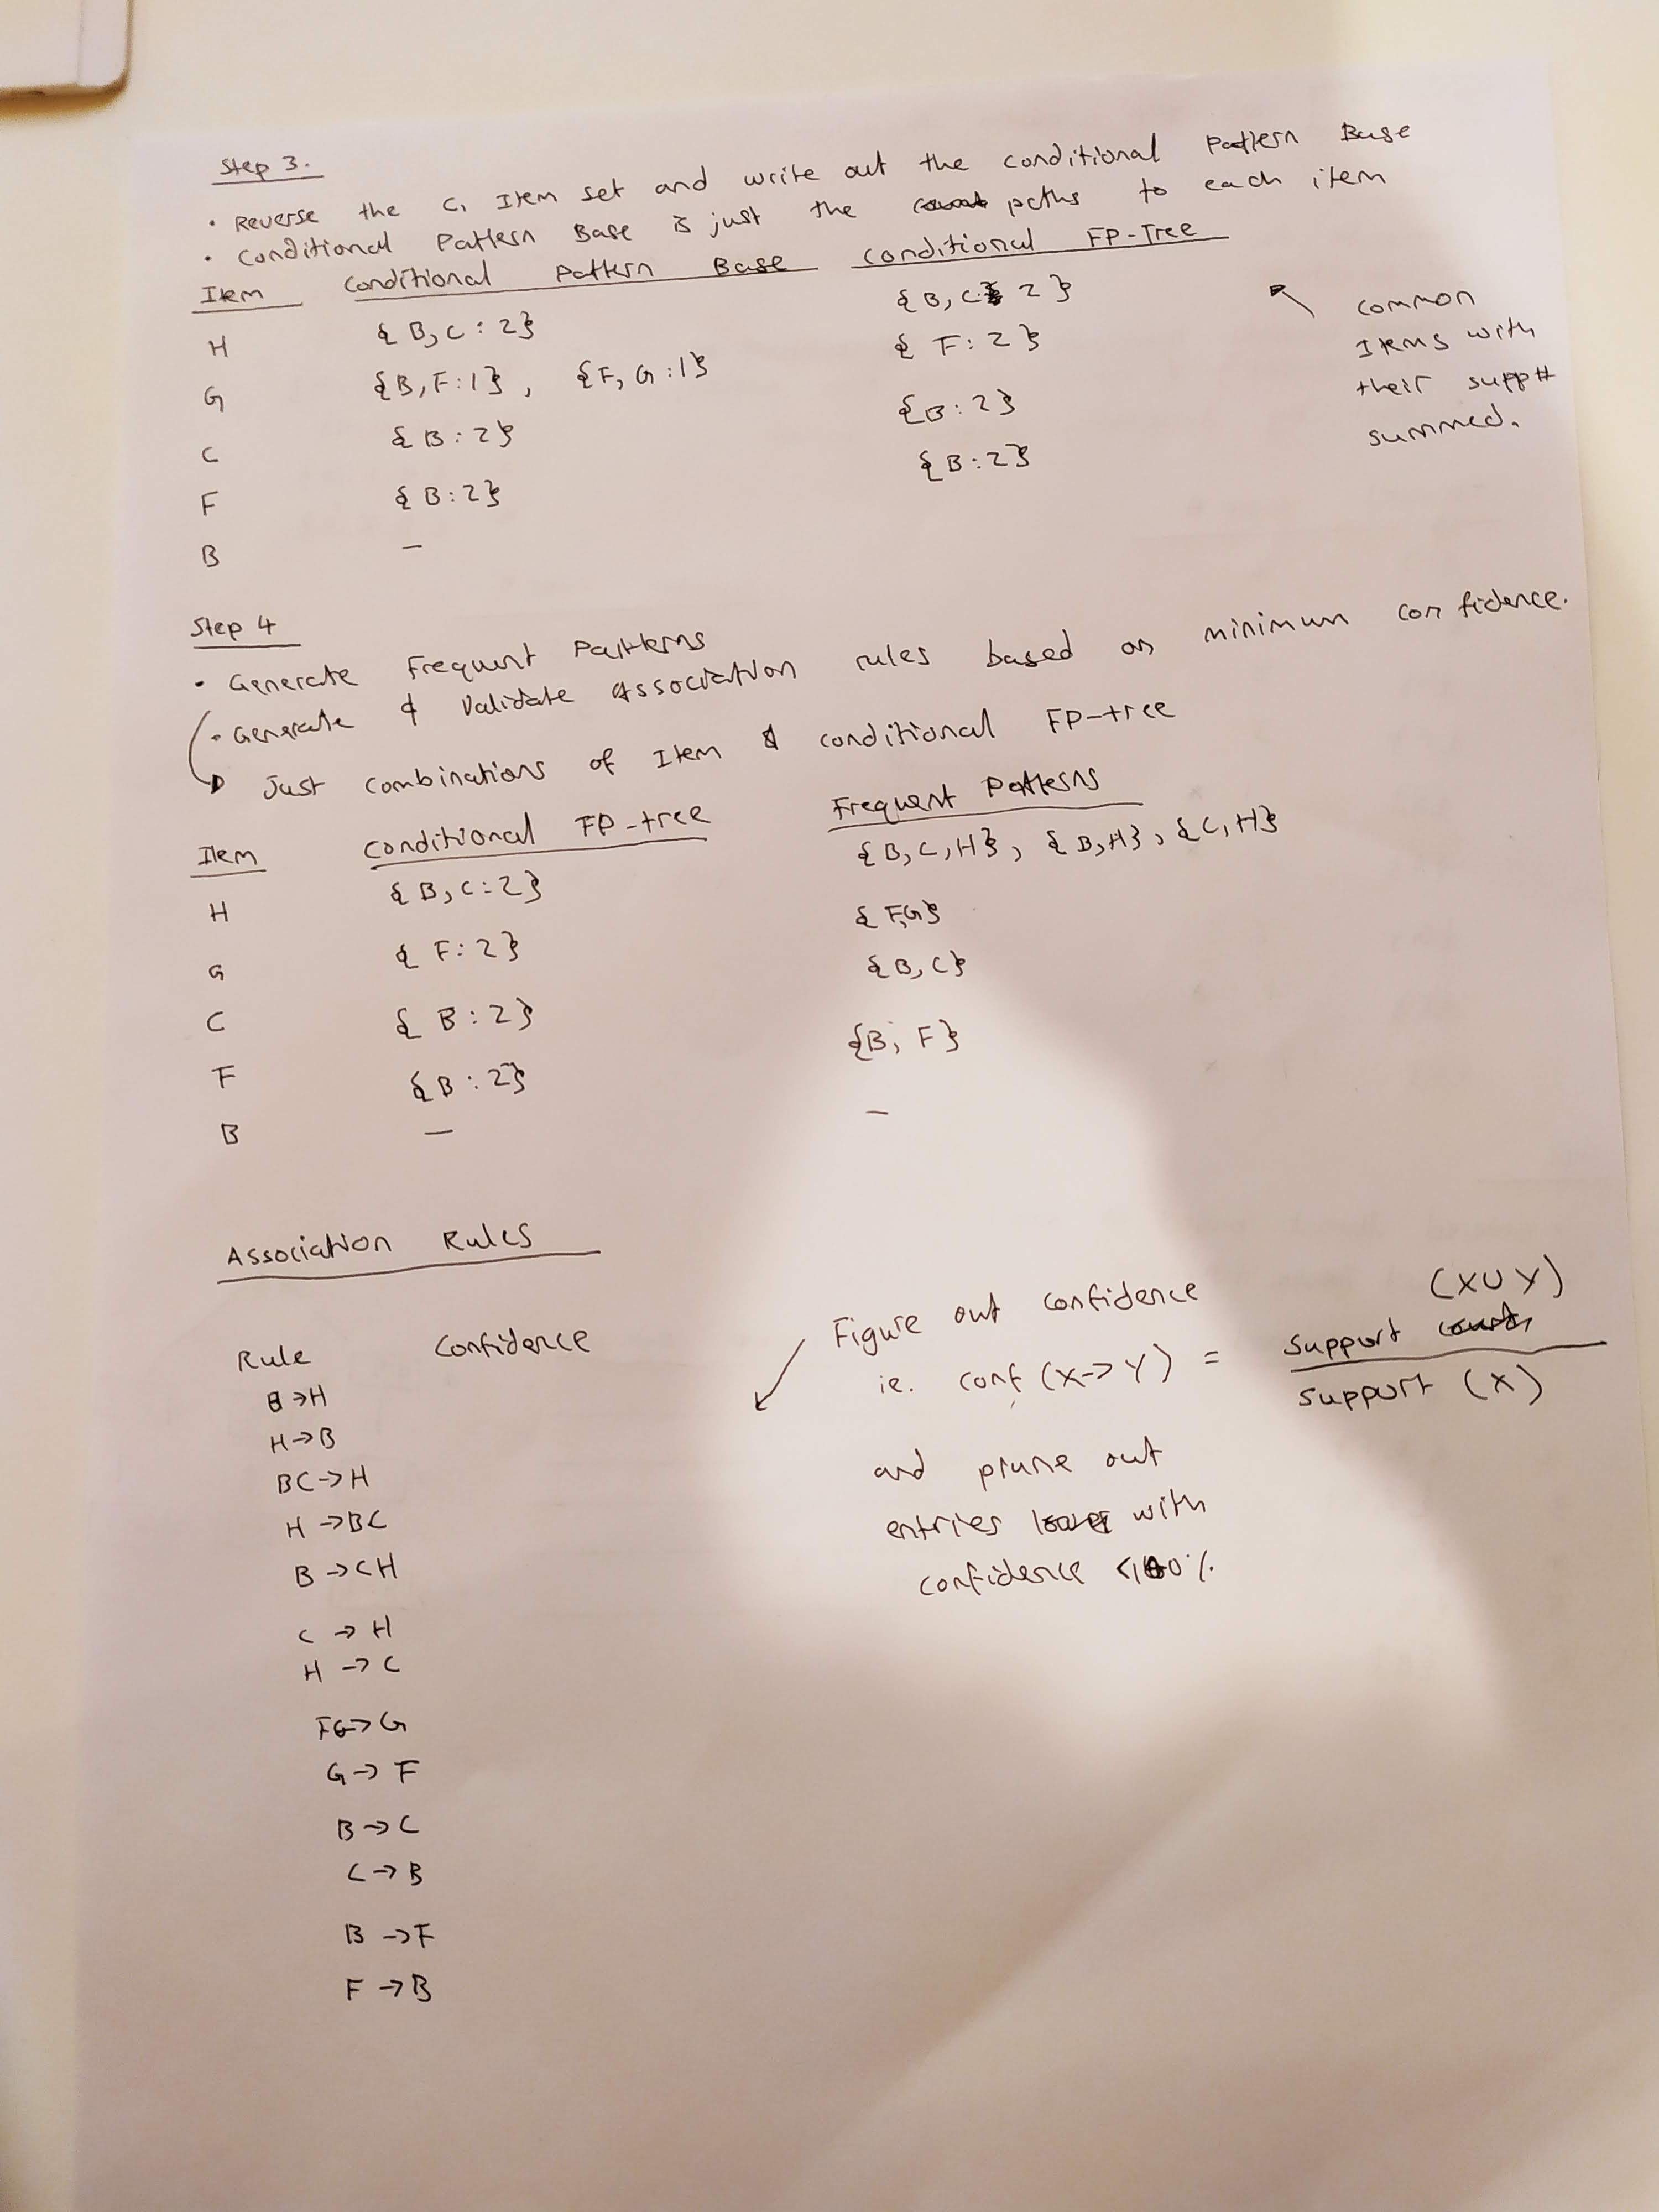 Step 3.
• Reverse the C1 Item set and write out the conditional Pattern Base
• Conditional Pattern Base is just the paths to each item
Item Conditional Pattern Base Conditional FP-Tree
H {B, C : 2} {B, C : 2}
G {B, F : 1} , {F, G : 1} {F : 2}
C {B : 2} {B : 2}
F {B : 2} {B : 2}
B –
common
Items with
their supp #
summed.
Step 4
• Generate Frequent Patterns
• Generate & Validate Association rules based on minimum confidence.
Just combinations of Item & conditional FP-tree
Item Conditional FP-tree Frequent Patterns
H {B, C : 2} {B, C, H}, {B, H}, {C, H}
G {F : 2} {F, G}
C {B : 2} {B, C}
F {B : 2} {B, F}
B – –
Association Rules
Rule Confidence
B → H
H → B
BC → H
H → BC
B → CH
C → H
H → C
F → G
G → F
B → C
C → B
B → F
F → B
Figure out confidence
ie. conf (X → Y) = support (X ∪ Y)
support (X)
and prune out
entries with
confidence < %.